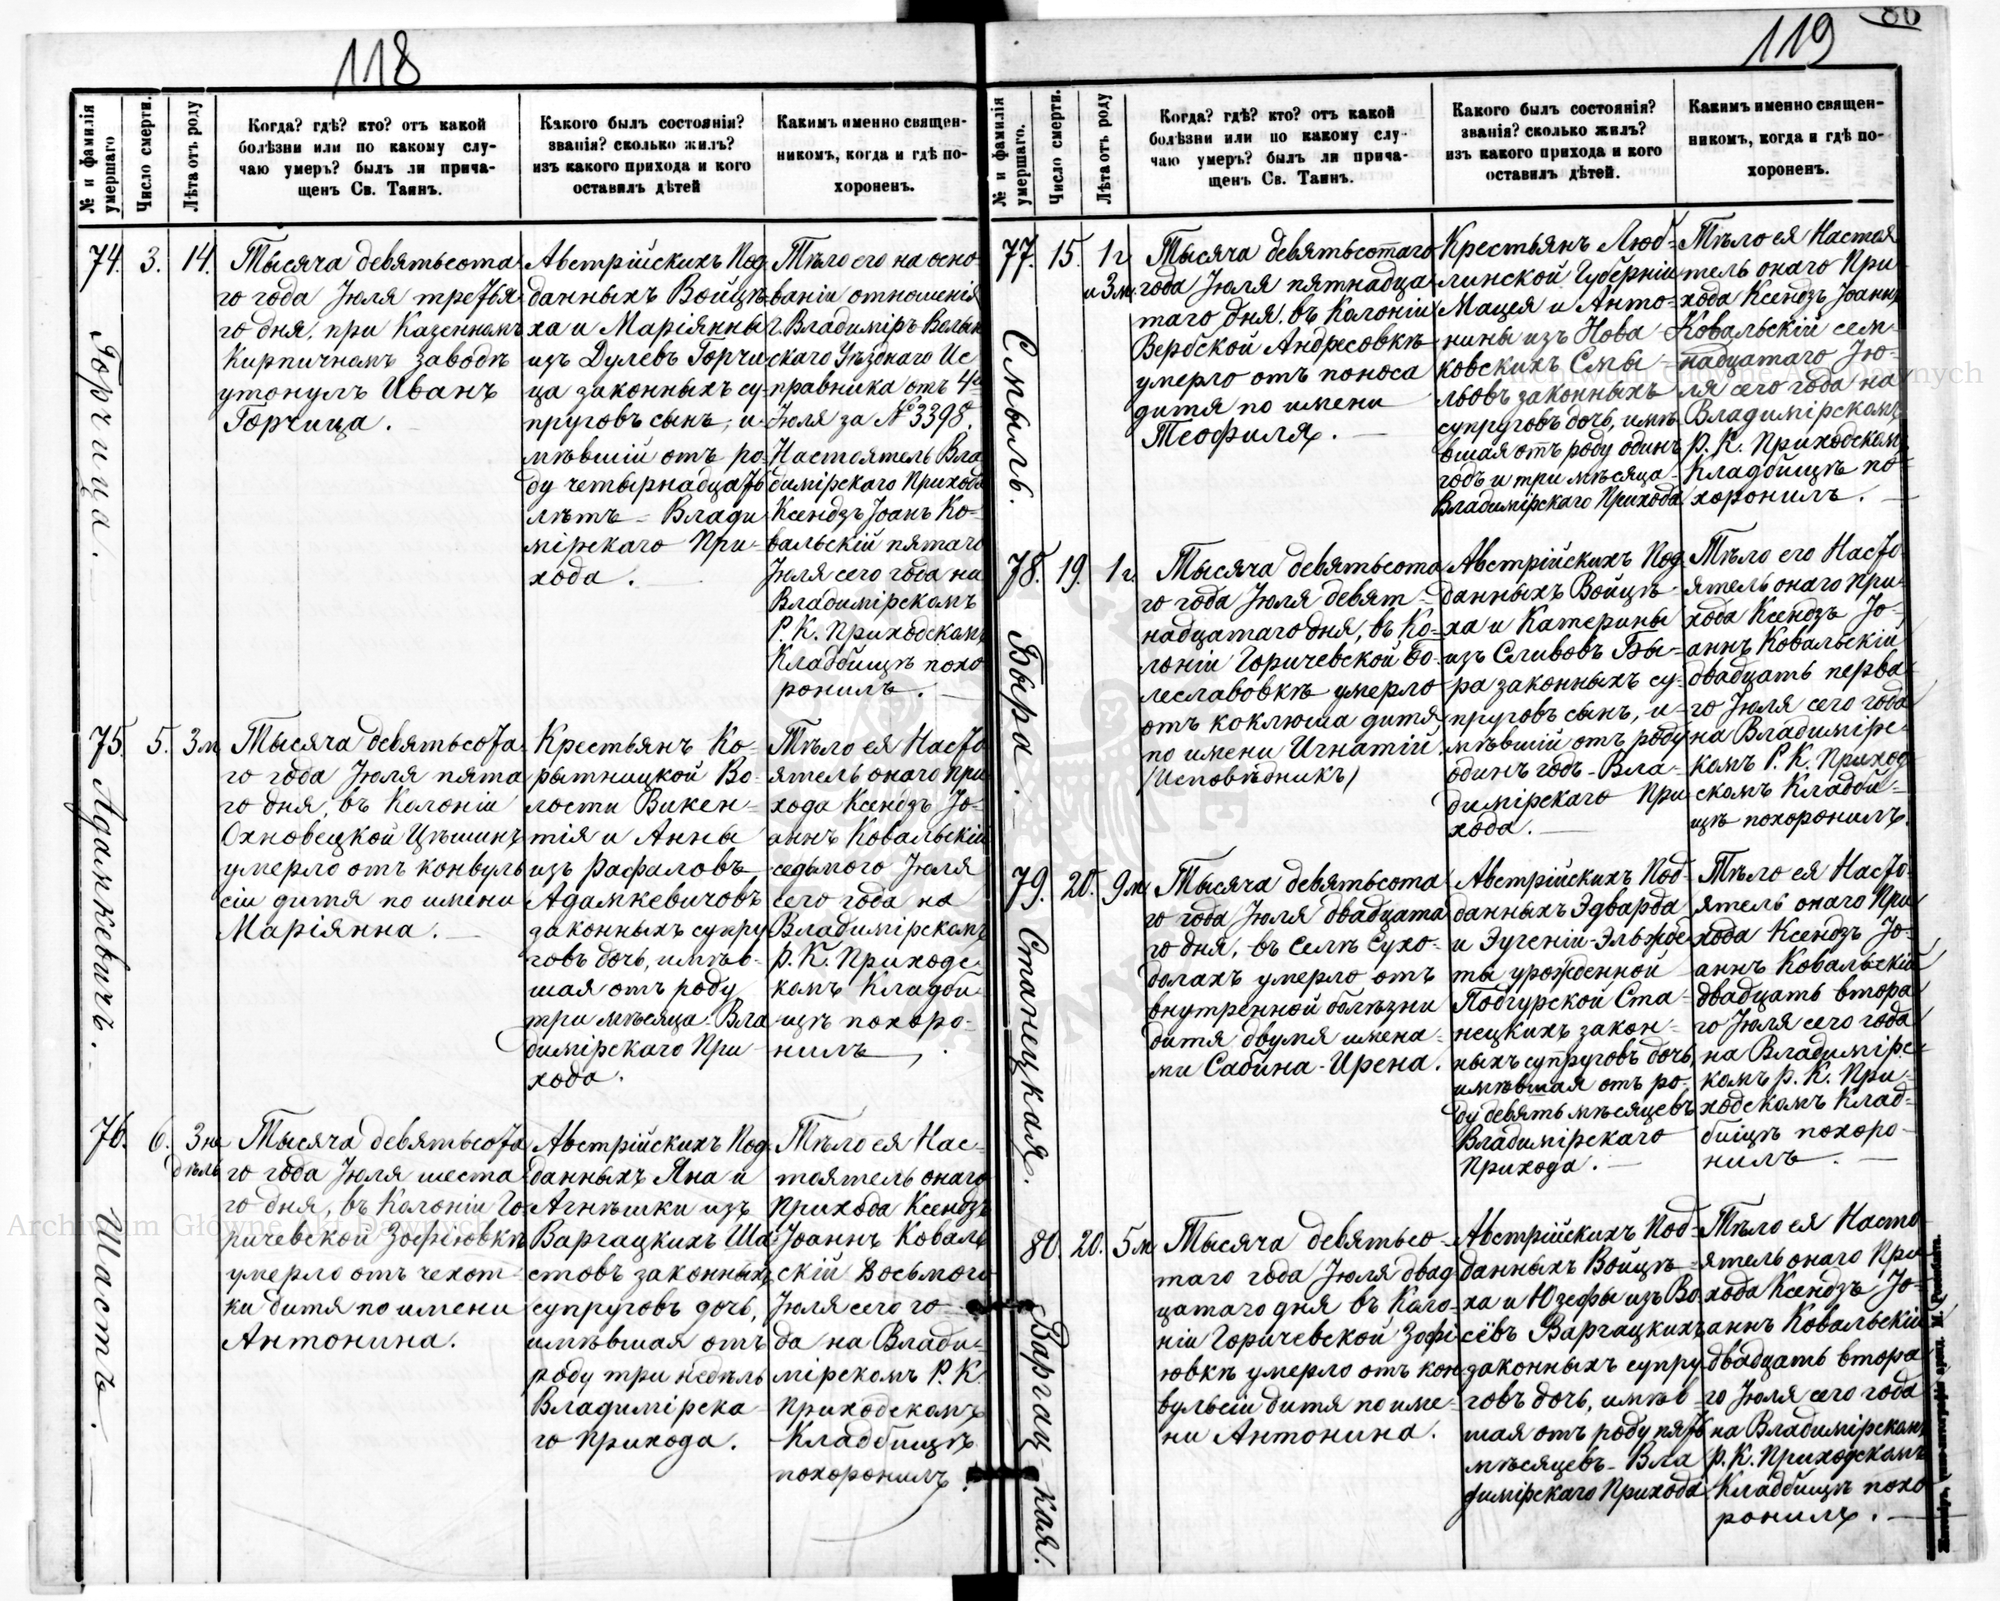 118
№ и фамилія умершаго
Число смерти.
Лѣта отъ роду
Когда? гдѣ? кто? отъ какой
болѣзни или по какому слу-
чаю умеръ? былъ ли прича-
щенъ Св. Таинъ.
Какого былъ состоянія?
званія? сколько жилъ?
изъ какого прихода и кого
оставилъ дѣтей
Какимъ именно священ-
никомъ, когда и гдѣ по-
хороненъ.
74.
Горчица.
3.
14.
Тысяча девятьсота
го года Іюля третья
го дня, при Казенномъ
Кирпичномъ заводѣ
утонулъ Иванъ
Горчица.
Австрійскихъ Под
данныхъ Войцѣ
ха и Маріянны
изъ Дулевъ Горчи
ца законныхъ су-
пруговъ сынъ, и-
мѣвшій отъ ро-
ду четырнадцать
лѣтъ - Влади
мірскаго При-
хода.
Тѣло его на осно-
ваніи отношенія
Г. Владиміръ Волын
скаго Уѣзднаго Ис
правника отъ 4го
Іюля за № 3398.
Настоятель Вла
димірскаго Прихода
Ксендзъ Іоанъ Ко-
вальскій пятаго
Іюля сего года на
Владимірскомъ
Р. К. Приходскомъ
Кладбищѣ похо
ронилъ.
75.
Адамкевичъ.
5.
3 м
Тысяча девятьсота
го года Іюля пята
го дня, въ Колоніи
Охновецкой Цѣшинъ
умерло отъ конвуль
сіи дитя по имени
Маріянна.
Крестьянъ Ко-
рытницкой Во-
лости Викен-
тія и Анны
изъ Рафаловъ
Адамкевичовъ
законныхъ супру
говъ дочь, имѣв-
шая отъ роду
три мѣсяца - Вла
димірскаго При-
хода.
Тѣло ея Насто
ятель онаго При
хода Ксендзъ Іо-
аннъ Ковальскій
седьмого Іюля
сего года на
Владимірскомъ
Р. К. Приходс
комъ Кладби
щѣ похоро-
нилъ.
76.
Шастъ.
6.
3 не
дѣль
Тысяча девятьсота
го года Іюля шеста
го дня, въ Колоніи Го
ричевской Зофіювкѣ
умерло отъ чехот-
ки дитя по имени
Антонина.
Австрійскихъ Под
данныхъ Яна и
Агнѣшки изъ
Варгацкихъ Ша-
стовъ законныхъ
супруговъ дочь,
имѣвшая отъ
роду три недѣль
Владимірска-
го Прихода.
Тѣло ея Нас-
тоятель онаго
Прихода Ксендзъ
Іоаннъ Коваль
скій восьмого
Іюля сего го-
да на Влади-
мірскомъ Р. К.
Приходскомъ
Кладбищѣ
похоронилъ.
86
119
№ и фамилія умершаго.
Число смерти.
Лѣта отъ роду
Когда? гдѣ? кто? отъ какой
болѣзни или по какому слу-
чаю умеръ? былъ ли прича-
щенъ Св. Таинъ.
Какого былъ состоянія?
званія? сколько жилъ?
изъ какого прихода и кого
оставилъ дѣтей.
Какимъ именно священ-
никомъ, когда и гдѣ по-
хороненъ.
77.
Смыль.
15.
1 г
и 3 м.
Тысяча девятьсотаго
года Іюля пятнадца
таго дня, въ Колоніи
Вербской Андресовкѣ
умерло отъ поноса
дитя по имени
Теофиля.
Крестьянъ Люб-
линской Губерніи
Мацея и Анто-
нины изъ Нова-
ковскихъ Смы-
льовъ законныхъ
супруговъ дочь, имѣ
вшая отъ роду одинъ
годъ и три мѣсяца-
Владимірскаго Прихода
Тѣло ея Настоя
тель онаго При
хода Ксендзъ Іоаннъ
Ковальскій сем-
надцатаго Ію-
ля сего года на
Владимірскомъ
Р. К. Приходскомъ
Кладбищѣ по-
хоронилъ.
78.
Быра.
19.
1 г
Тысяча девятьсота
го года Іюля девят-
надцатаго дня, въ Ко-
лоніи Горичевской Бо-
леславовкѣ умерло
отъ коклюша дитя
по имени Игнатій
(Исповѣдникъ)
Австрійскихъ Под
данныхъ Войцѣ-
ха и Катерины
изъ Сливовъ Бы-
ра законныхъ су-
пруговъ сынъ, и-
мѣвшій отъ роду
одинъ годъ - Вла-
димірскаго При
хода.
Тѣло его Насто-
ятель онаго При-
хода Ксендзъ Іо-
аннъ Ковальскій
двадцать перва
го Іюля сего года
на Владимірс-
комъ Р. К. Приход
скомъ Кладби-
щѣ похоронилъ.
79.
Станецкая.
20.
9 м
Тысяча девятьсота
го года Іюля двадцата
го дня, въ селѣ Сухо-
долахъ умерло отъ
внутренной болѣзни
дитя двумя имена-
ми Сабина-Ирена.
Австрійскихъ Под-
данныхъ Эдварда
и Эугеніи-Эльжбе
ты урожденной
Подгурской Ста-
нецкихъ закон-
ныхъ супруговъ дочь
имѣвшая отъ ро-
ду девять мѣсяцевъ
Владимірскаго
Прихода.
Тѣло ея Насто-
ятель онаго При
хода Ксендзъ Іо-
аннъ Ковальскій
двадцать втора
го Іюля сего года
на Владимірс-
комъ Р. К. При-
ходскомъ Клад-
бищѣ похоро-
нилъ.
80.
Варгац-кая.
20.
5 м
Тысяча девятьсо-
таго года Іюля двад
цатаго дня въ Коло-
ніи Горичевской Зофі
ювкѣ умерло отъ кон
вульсіи дитя по име-
ни Антонина.
Австрійскихъ Под-
данныхъ Войцѣ-
ха и Юзефы изъ Во
сёвъ Варгацкихъ
законныхъ супру
говъ дочь, имѣв-
шая отъ роду пять
мѣсяцевъ - Вла
димірскаго Прихода
Тѣло ея Насто
ятель онаго При
хода Ксендзъ Іо-
аннъ Ковальскій
двадцать втора
го Іюля сего года
на Владимірскомъ
Р. К. Приходскомъ
Кладбищѣ похо
ронилъ.
Archiwum Główne Akt Dawnych
Archiwum Główne Akt Dawnych